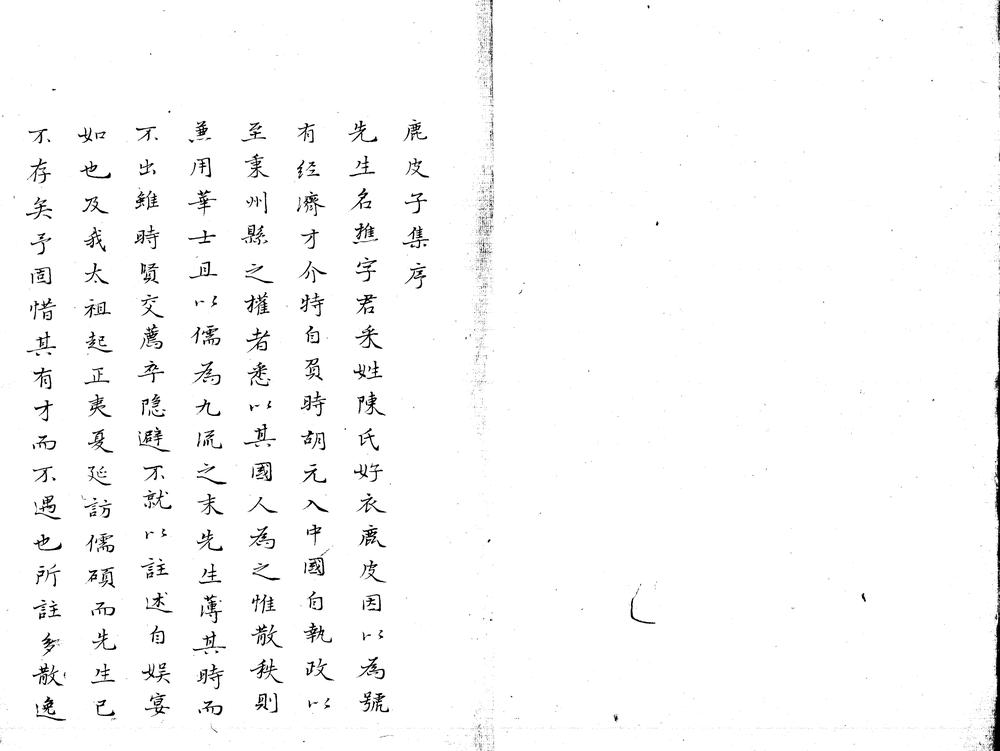 鹿皮子集序
先生名樵字君采姓陳氏好衣鹿皮因以為號
有經濟才介特自負時胡元入中國自執政以
至稟州縣之權者悉以其國人為之惟散秩則
兼用華士且以儒為九流之末先生薄其時而
不出雖時賢交薦卒隐避不就以註述自娱宴
如也及我太祖起正夷夏延訪儒碩而先生已
不存矣予固惜其有才而不遇也所註多散逸